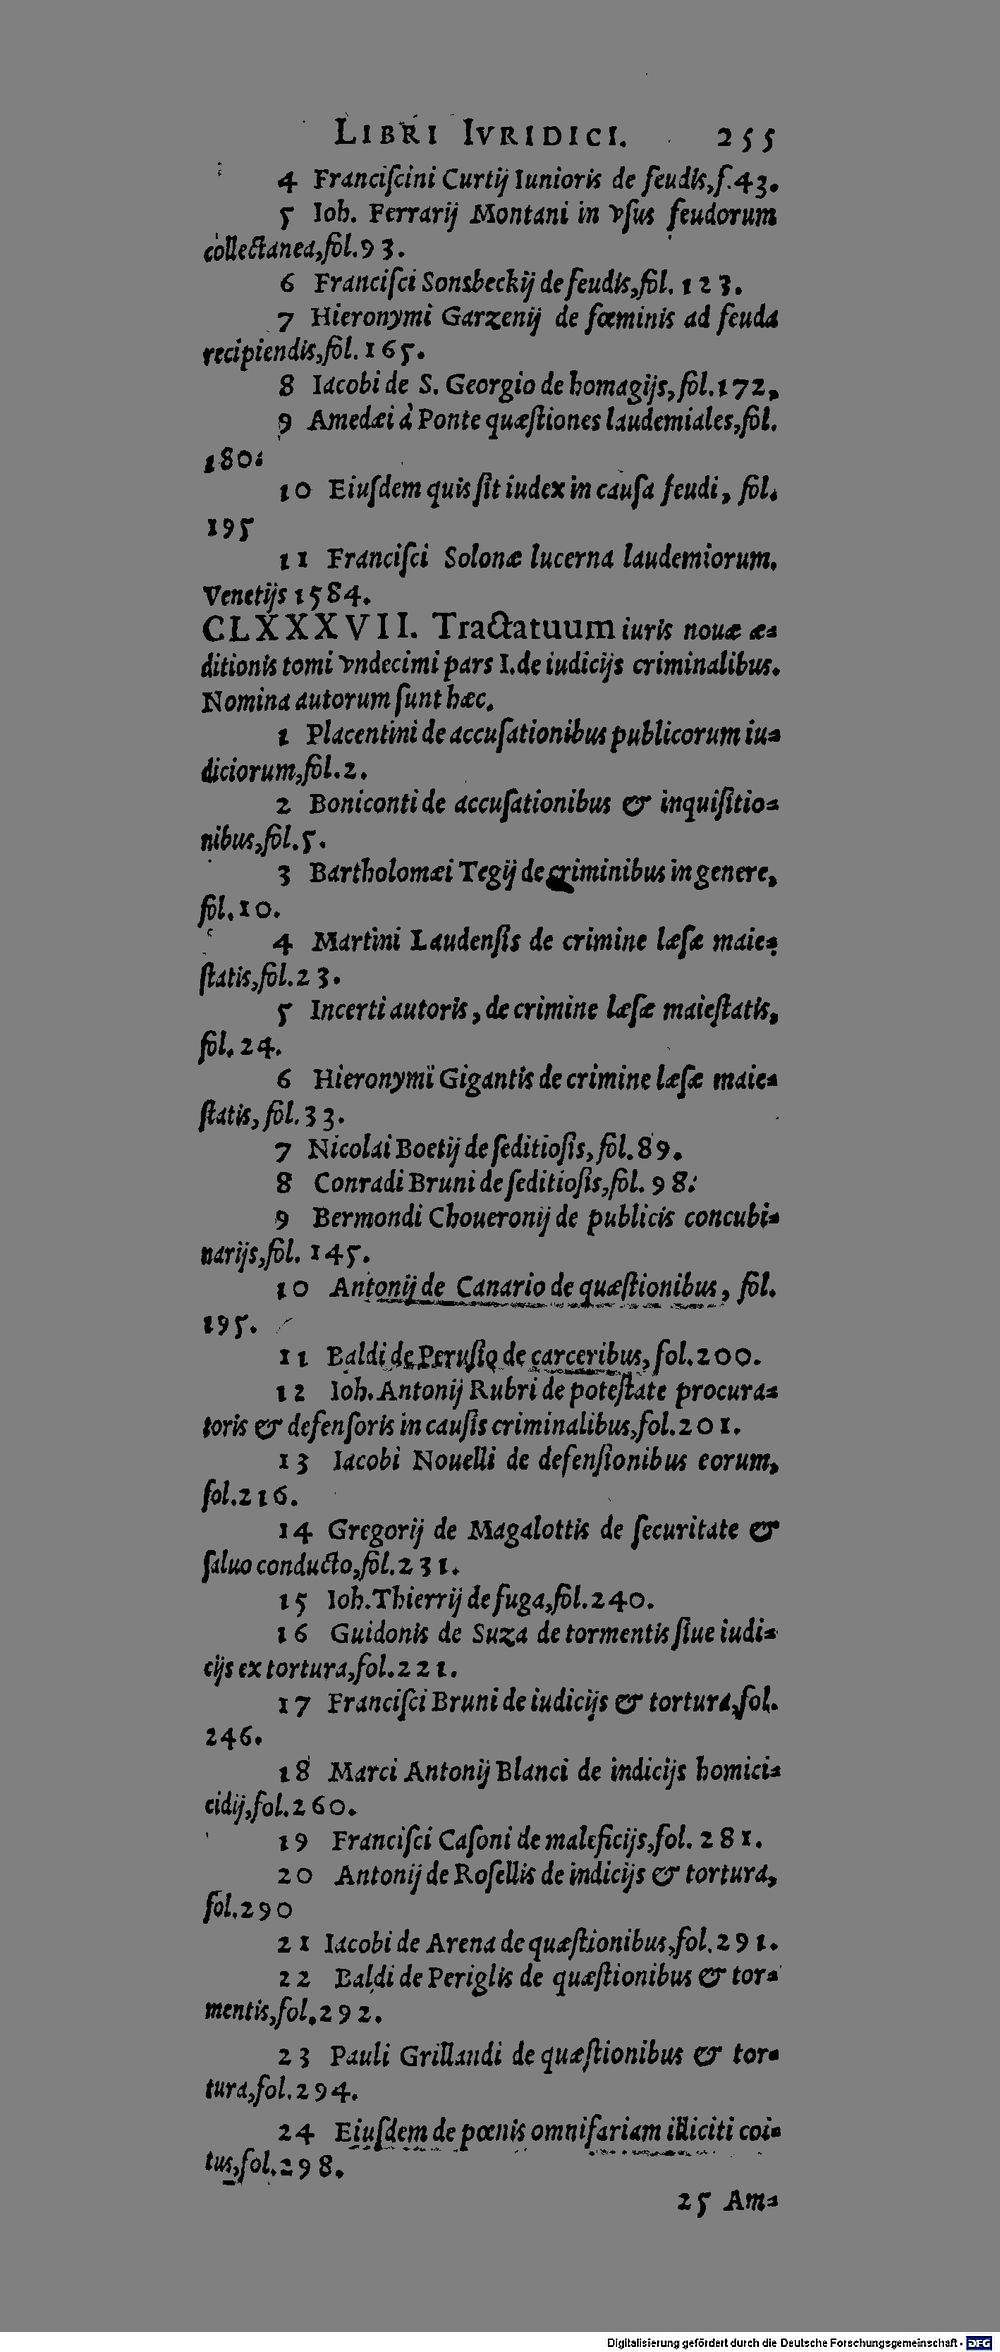 LIBRI IVRIDICI. 255
4 Franciſcini Curtij Iunioris de feudis,f.43.
5 Ioh. Ferrarij Montani in vſus feudorum
collectanea,fol.93.
6 Franciſci Sonsbeckij de feudis,fol. 123.
7 Hieronymi Garzenij de fœminis ad feuda
recipiendis,fol.165.
8 Iacobi de S. Georgio de homagijs,fol.172,
9 Amedæi à Ponte quæſtiones laudemiales,fol.
180.
10 Eiuſdem quis ſit iudex in cauſa feudi, fol.
195
11 Franciſci Solonæ lucerna laudemiorum.
Venetijs 1584.
CLXXXVII. Tractatuum iuris nouæ æ-
ditionis tomi vndecimi pars I.de iudicijs criminalibus.
Nomina autorum ſunt hæc.
1 Placentini de accuſationibus publicorum iu-
diciorum,fol.2.
2 Boniconti de accuſationibus & inquiſitio-
nibus,fol.5.
3 Bartholomæi Tegij de criminibus in genere,
fol.10.
4 Martini Laudenſis de crimine læſæ maie-
ſtatis,fol.23.
5 Incerti autoris, de crimine læſæ maieſtatis,
fol.24.
6 Hieronymi Gigantis de crimine læſæ maie-
ſtatis, fol.33.
7 Nicolai Boetij de ſeditioſis, fol.89.
8 Conradi Bruni de ſeditioſis,fol. 98.
9 Bermondi Choueronij de publicis concubi-
narijs,fol. 145.
10 Antonij de Canario de quæſtionibus, fol.
195.
11 Baldi de Peruſio de carceribus, fol.200.
12 Ioh. Antonij Rubri de poteſtate procura-
toris & defenſoris in cauſis criminalibus,fol.201.
13 Iacobi Nouelli de defenſionibus eorum,
fol.216.
14 Gregorij de Magalottis de ſecuritate &
ſaluo conducto,fol.231.
15 Ioh.Thierrij de fuga,fol.240.
16 Guidonis de Suza de tormentis ſiue iudi-
cijs ex tortura,fol.221.
17 Franciſci Bruni de iudicijs & tortura,fol.
246.
18 Marci Antonij Blanci de indicijs homici-
cidij,fol.260.
19 Franciſci Caſoni de maleficijs,fol. 281.
20 Antonij de Roſellis de indicijs & tortura,
fol.290
21 Iacobi de Arena de quæſtionibus,fol.291.
22 Baldi de Periglis de quæſtionibus & tor-
mentis,fol.292.
23 Pauli Grillandi de quæſtionibus & tor-
tura,fol.294.
24 Eiuſdem de pœnis omnifariam illiciti coi-
tus,fol.298.
25 Am-
Digitalisierung gefördert durch die Deutsche Forschungsgemeinschaft - DFG